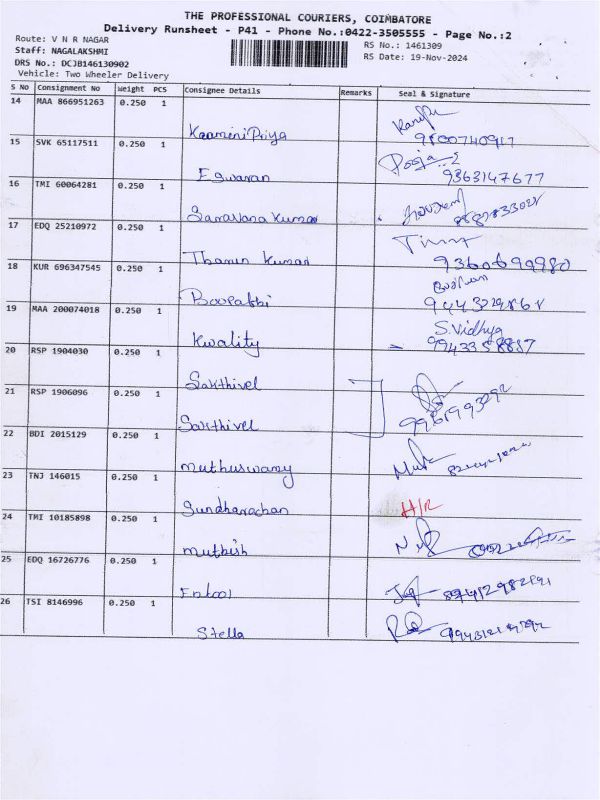 THE PROFESSIONAL COURIERS, COIMBATORE
Delivery Runsheet - P41 - Phone No.:0422-3505555 - Page No.:2
Route: V N R NAGAR
RS No.: 1461309
Staff: NAGALAKSHMI
RS Date: 19-Nov-2024
DRS No.: DCJB146130902
Vehicle: Two Wheeler Delivery
S No Consignment No Weight PCS Consignee Details Remarks Seal & Signature
14 MAA 866951263 0.250 1
KaaminiPriya
9800740917
15 SVK 65117511 0.250 1
Pooja
Eswaran 9363147677
16 TMI 60064281 0.250 1
Saravana Kumar
17 EDQ 25210972 0.250 1
Tharun Kumar 9360699980
18 KUR 696347545 0.250 1
19 MAA 200074018 0.250 1
S.Vidhya
Kwality
20 RSP 1904030 0.250 1
Sakthivel
21 RSP 1906096 0.250 1
Sakthivel
22 BDI 2015129 0.250 1
muthuswamy
23 TNJ 146015 0.250 1
H/R
24 TMI 10185898 0.250 1
25 EDQ 16726776 0.250 1
26 TSI 8146996 0.250 1
Stella